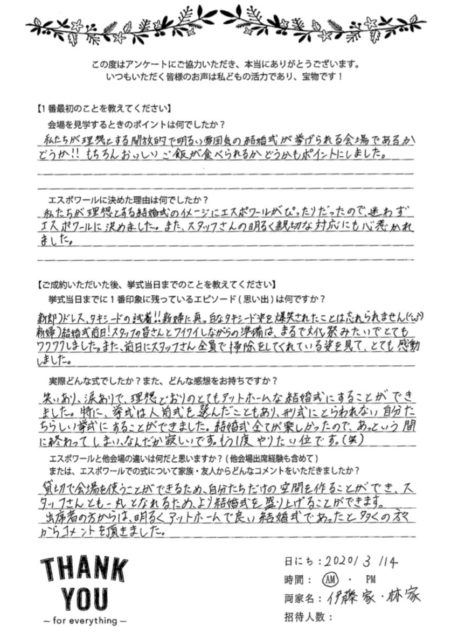 この度はアンケートにご協力いただき、本当にありがとうございます。
いつもいただく皆様のお声は私どもの活力であり、宝物です！
【1番最初のことを教えてください】
会場を見学するときのポイントは何でしたか？
私たちが理想とする開放的で明るい雰囲気の結婚式が挙げられる会場であるか
どうか!! もちろんおいしいご飯が食べられるかどうかもポイントにしました。
エスポワールに決めた理由は何でしたか？
私たちが理想とする結婚式のイメージにエスポワールがぴったりだったので、迷わず
エスポワールに決めました。また、スタッフさんの明るく親切な対応にも心惹かれ
ました。
【ご成約いただいた後、挙式当日までのことを教えてください】
挙式当日までに1番印象に残っているエピソード(思い出)は何ですか？
新郎)ドレス、タキシードの試着!!新婦に真っ白なタキシード姿を爆笑されたことは忘れられません
新婦)結婚式前日!スタッフの皆さんとワイワイしながらの準備は、まるで文化祭みたいでとても
ワクワクしました。また、前日にスタッフさん全員で掃除をしてくれている姿を見て、とても感動
しました。
実際どんな式でしたか？また、どんな感想をお持ちですか？
笑いあり、涙ありで、理想どおりのとてもアットホームな結婚式にすることができ
ました。特に、挙式は人前式を選んだこともあり、形式にとらわれない自分た
ちらしい挙式にすることができました。結婚式全てが楽しかったので、あっという間
に終わってしまい、なんだか寂しいです。もう1度やりたい位です。(笑)
エスポワールと他会場の違いは何だと思いますか？(他会場出席経験も含めて)
または、エスポワールでの式について家族・友人からどんなコメントをいただきましたか？
貸し切りで会場を使うことができるため、自分たちだけの空間を作ることができ、ス
タッフさんとも一丸となれるため、より結婚式を盛り上げることができます。
出席者の方からは、明るくアットホームで良い結婚式であったと多くの方々
からコメントを頂きました。
THANK
YOU
for everything
日にち：2020/3/14
時間：AM・PM
両家名：伊藤家・林家
招待人数：